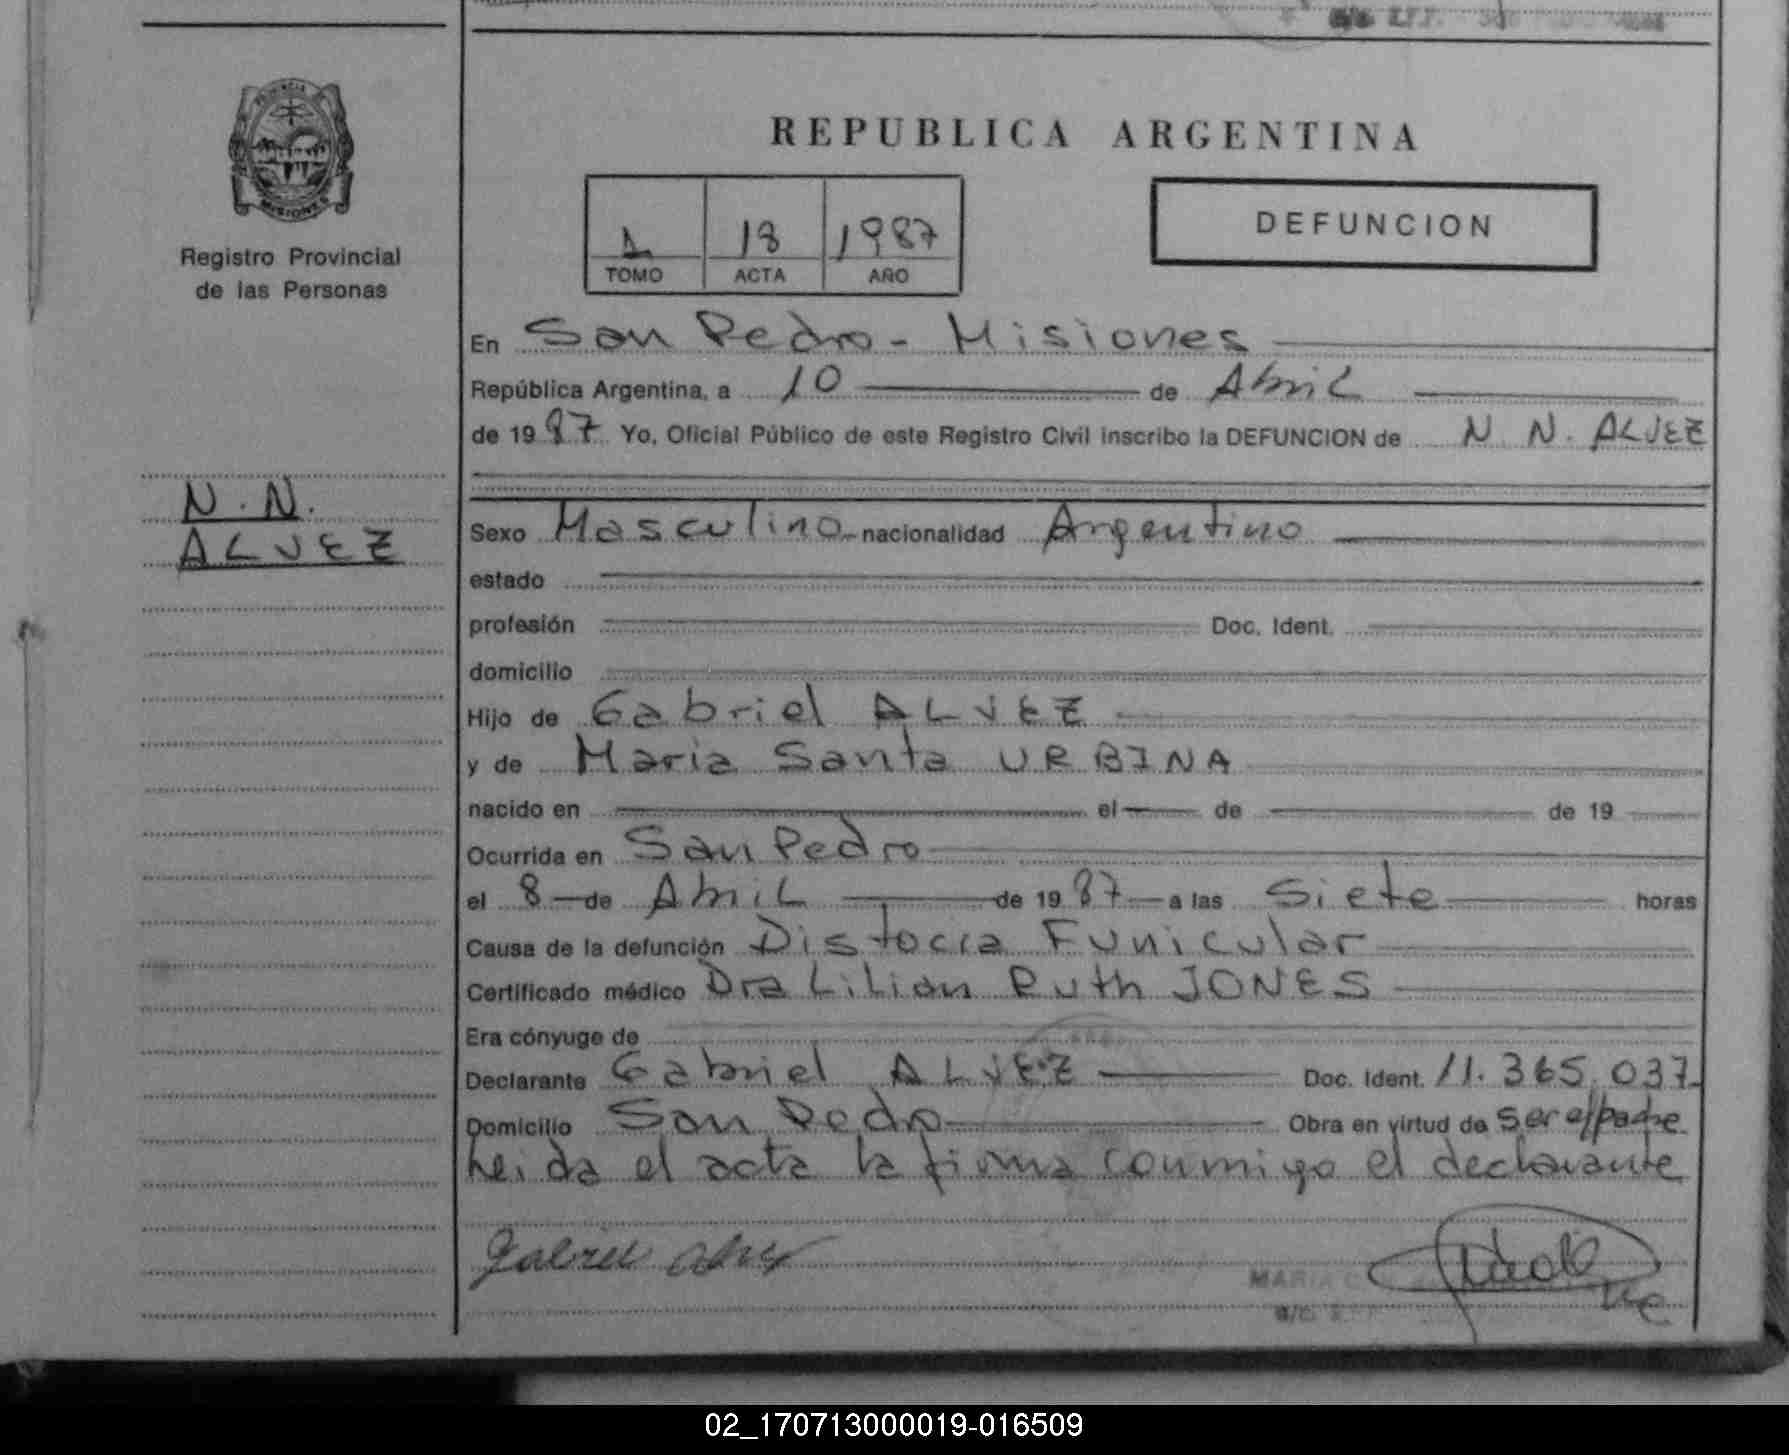 PROVINCIA
MISIONES
Registro Provincial
de las Personas
N.N.
ALVEZ
REPUBLICA ARGENTINA
1 18 1987
TOMO ACTA AÑO
DEFUNCION
En San Pedro - Misiones
República Argentina, a 10 de Abril
de 1987 Yo, Oficial Público de este Registro Civil inscribo la DEFUNCION de N N. ALVEZ
Sexo Masculino nacionalidad Argentino
estado
profesión Doc. Ident.
domicilio
Hijo de Gabriel ALVEZ
y de Maria Santa URBINA
nacido en el de de 19
Ocurrida en San Pedro
el 8 de Abril de 1987 a las Siete horas
Causa de la defunción Distocia Funicular
Certificado médico Dra Lilian Ruth JONES
Era cónyuge de
Declarante Gabriel ALVEZ Doc. Ident. 11.365.037
Domicilio San Pedro Obra en virtud de ser el padre
Leida el acta la firma conmigo el declarante
Gabriel Alvez
MARIA
02_170713000019-016509